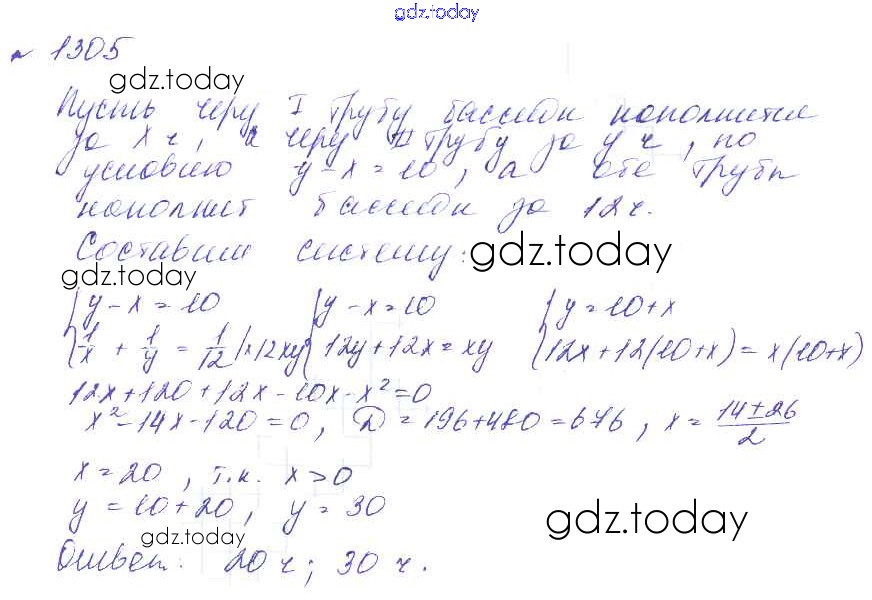 gdz.today
№ 1305
gdz.today
Пусть через I трубу бассейн наполнится
за x ч, а через II трубу за y ч, по
условию y - x = 10, а обе трубы
наполнят бассейн за 12 ч.
Составим систему: gdz.today
gdz.today
{ y - x = 10 { y - x = 10 { y = 10 + x
{ 1/x + 1/y = 1/12 | × 12xy { 12y + 12x = xy { 12x + 12(10 + x) = x(10 + x)
12x + 120 + 12x - 10x - x² = 0
x² - 14x - 120 = 0, D = 196 + 480 = 676, x = (14 ± 26)/2
x = 20, т.к. x > 0
y = 10 + 20, y = 30
gdz.today
gdz.today
Ответ: 20 ч; 30 ч.